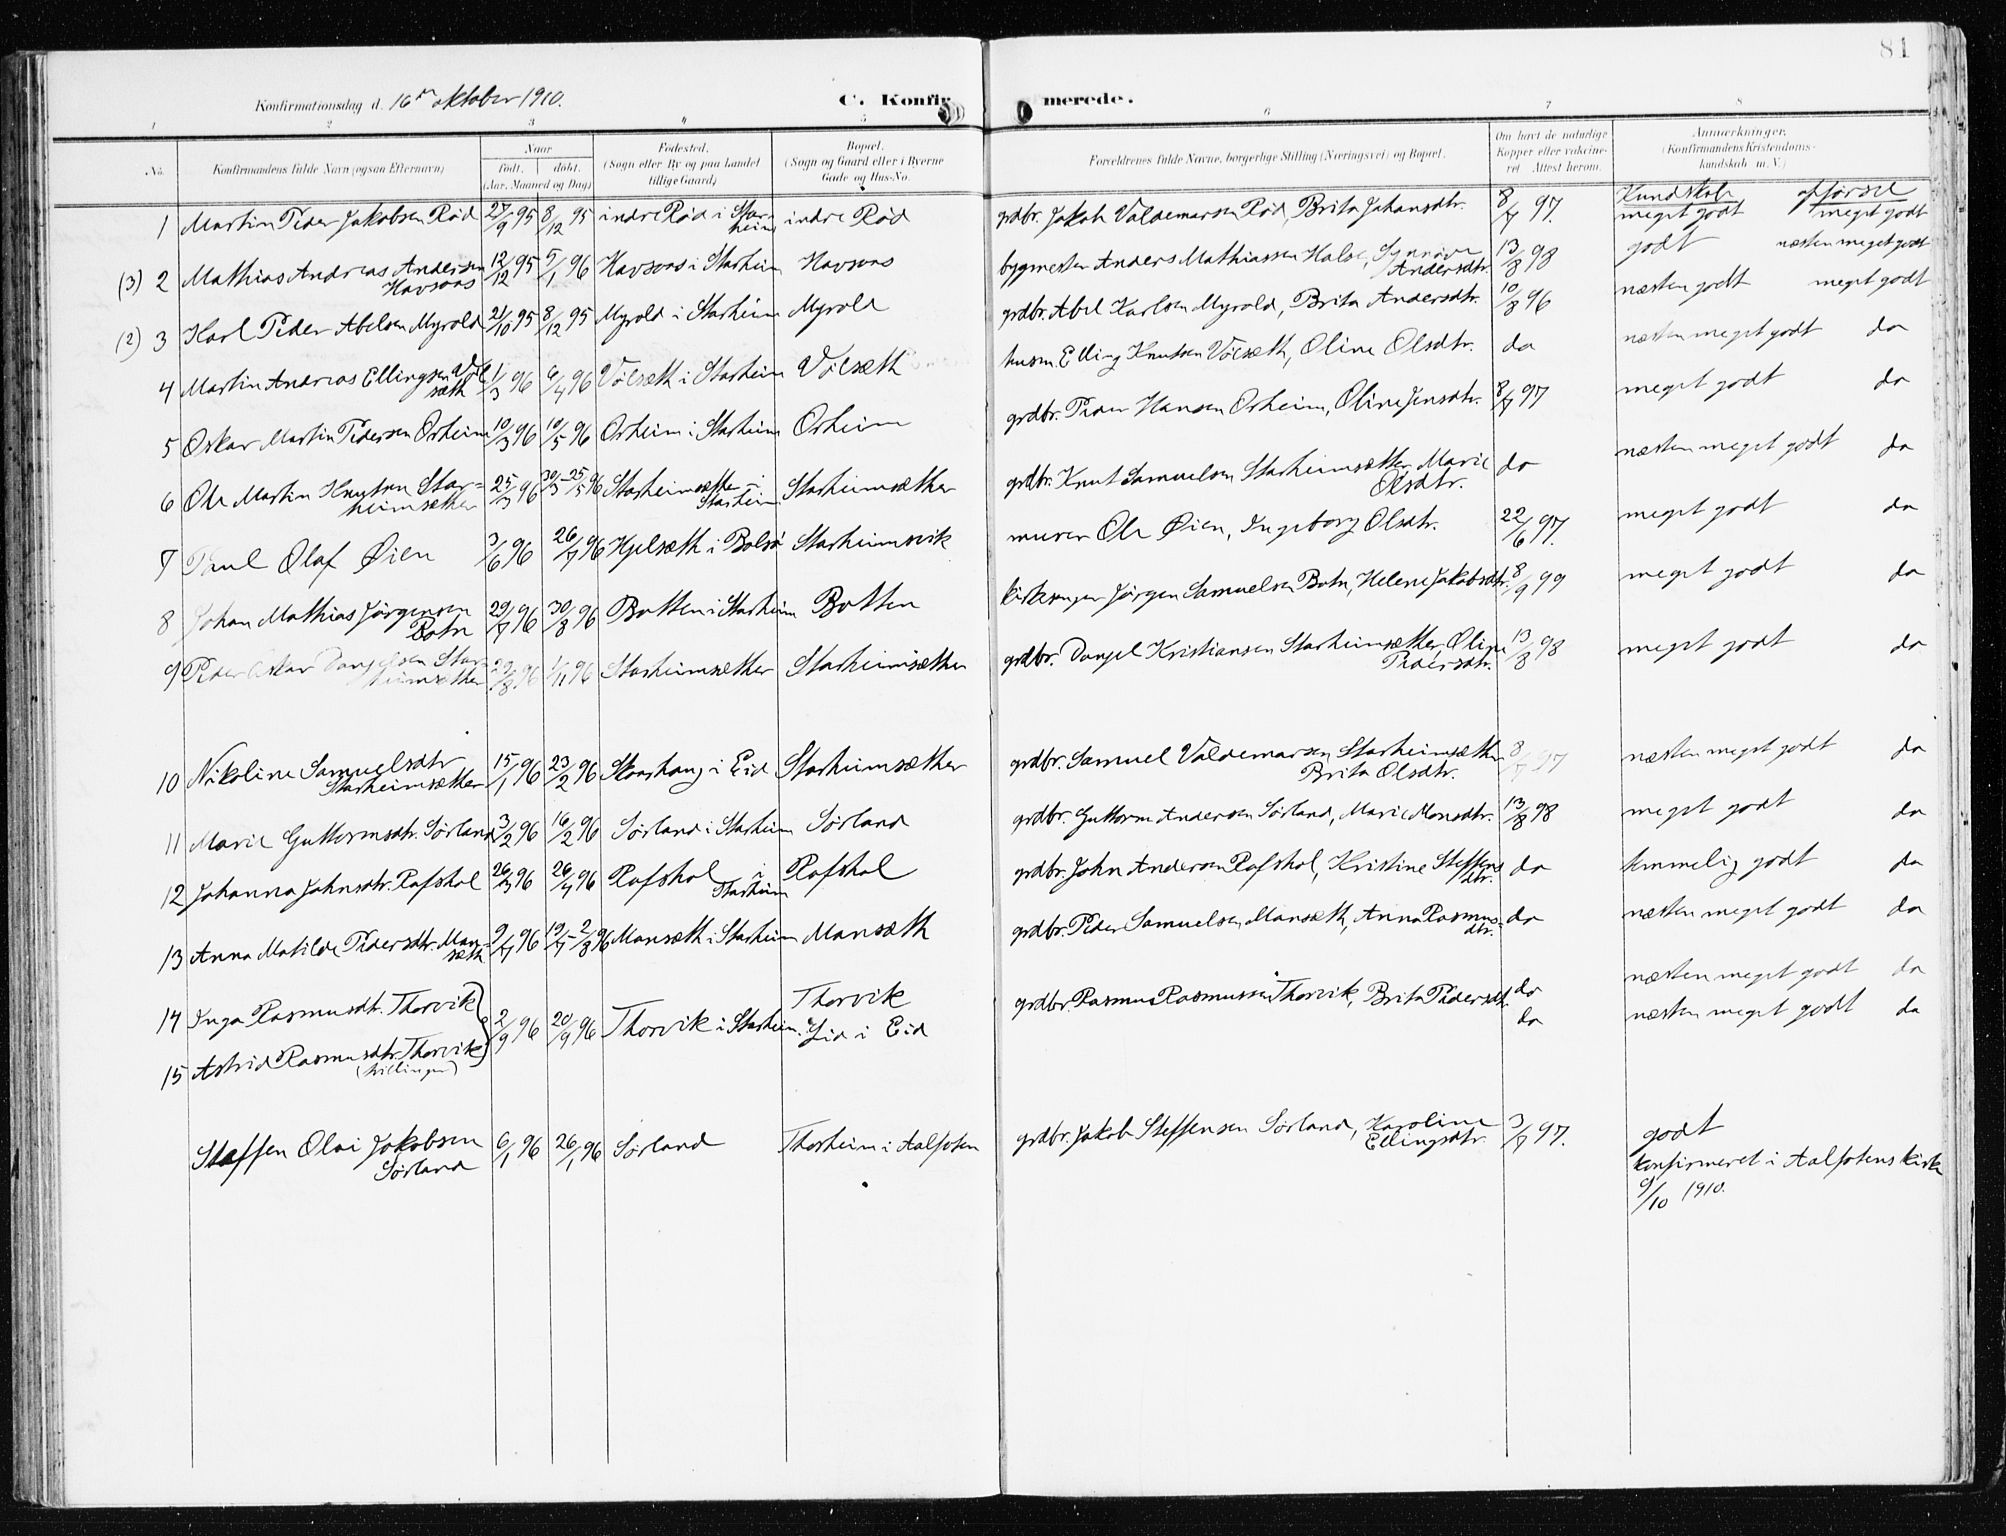 81
Konfirmationsdag d. 16de oktober 1910.
C. Konfirmerede.
1 2 3 4 5 6 7 8
No.
Konfirmandens fulde Navn (ogsaa Efternavn)
Naar
født. døbt.
(Aar, Maaned og Dag)
Fødested.
(Sogn eller By og paa Landet
tillige Gaard)
Bopæl.
(Sogn og Gaard eller i Byerne
Gade og Hus-No.
Forældrenes fulde Navne, borgerlige Stilling (Næringsvei) og Bopæl.
Om havt de naturlige
Kopper eller vakcine-
ret Attest herom.
Anmærkninger.
(Konfirmandens Kristendoms-
kundskab m. V.)
Kundskab opførsel
1 Martin Peder Jakobsen Rød 27/9 95 8/12 95 indre Rød i Star-
heim indre Rød grdbr. Jakob Valdemarsen Rød, Brita Johansdtr. 8/7 97. meget godt meget godt
(3) 2 Mathias Andreas Andersen
Havsaas 12/12 95 5/1 96 Havsaas i Starheim Havsaas bygmester Anders Mathiassen Halse, Synnøve
Andersdtr. 13/8 98 godt næsten meget godt
(2) 3 Karl Peder Abelsen Myrold 21/10 95 8/12 95 Myrold i Starheim Myrold grdbr. Abel Karlsen Myrold, Brita Andersdtr. 10/8 96 næsten godt meget godt
4 Martin Andreas Ellingsen Vøl
sæth 1/3 96 6/4 96 Vølsæth i Starheim Vølsæth husm Elling Knutsen Vølsæth, Oline Olsdtr. do næsten meget godt do
5 Oskar Martin Pedersen Orheim 10/3 96 10/5 96 Orheim i Starheim Orheim grdbr. Peder Hansen Orheim, Oline Jensdtr. 8/7 97 meget godt do
6 Ole Martin Knutsen Star-
heimsæther 25/3 96 30/3-25/5 96 Starheimsæther i
Starheim Starheimsæther grdbr. Knut Samuelsen Starheimsæther, Marie
Olsdtr. do næsten meget godt do
7 Paul Olaf Øien 3/6 96 26/7 96 Hjelsæth i Bolsø Starheimsvik murer Ole Øien, Ingeborg Olsdtr. 22/6 97. meget godt do
8 Johan Mathias Jørgensen
Botn 29/7 96 30/8 96 Botten i Starheim Botten kirkesanger Jørgen Samuelsen Botn, Helene Jakobsdtr. 8/9 99 meget godt do
9 Peder Oskar Danjelsen Star-
heimsæther 29/8 96 1/11 96 Starheimsæther Starheimsæther grdbr. Danjel Kristiansen Starheimsæther, Oline
Pedersdtr. 13/8 98 meget godt do
10 Nikoline Samuelsdtr
Starheimsæther 15/1 96 23/2 96 Skaarhaug i Eid Starheimsæther grdbr. Samuel Valdemarsen Starheimsæther
Brita Olsdtr. 8/7 97 næsten meget godt do
11 Marie Guttormsdtr. Sørland 3/2 96 16/2 96 Sørland i Starheim Sørland grdbr. Guttorm Andersen Sørland, Marie Monsdtr. 13/8 98 meget godt do
12 Johanna Johnsdtr. Rafshol 26/3 96 26/4 96 Rafshol i
Starheim Rafshol grdbr. John Andersen Rafshol, Kristine Steffens
dtr. do temmelig godt do
13 Anna Matilde Pedersdtr. Man-
sæth 9/7 96 19/7-2/8 96 Mansæth i Starheim Mansæth grdbr. Peder Samuelsen Mansæth, Anna Rasmus-
dtr. do næsten meget godt do
14 Inga Rasmusdt. Thorvik Thorvik grdbr Rasmus Rasmussen Thorvik, Brita Pedersdt. do næsten meget godt do
2/9 96 20/9 96 Thorvik i Starheim. Lid i Eid do næsten meget godt do
15 Astrid Rasmusdtr. Thorvik
(tvillinger)
Staffen Olai Jakobsen
Sørland 6/1 96 26/1 96 Sørland Thorheim i Aalfoten grdbr. Jakob Steffensen Sørland, Karoline
Ellingsdtr. 3/7 97. godt
konfirmeret i Aalfotens kirke
9/10 1910.